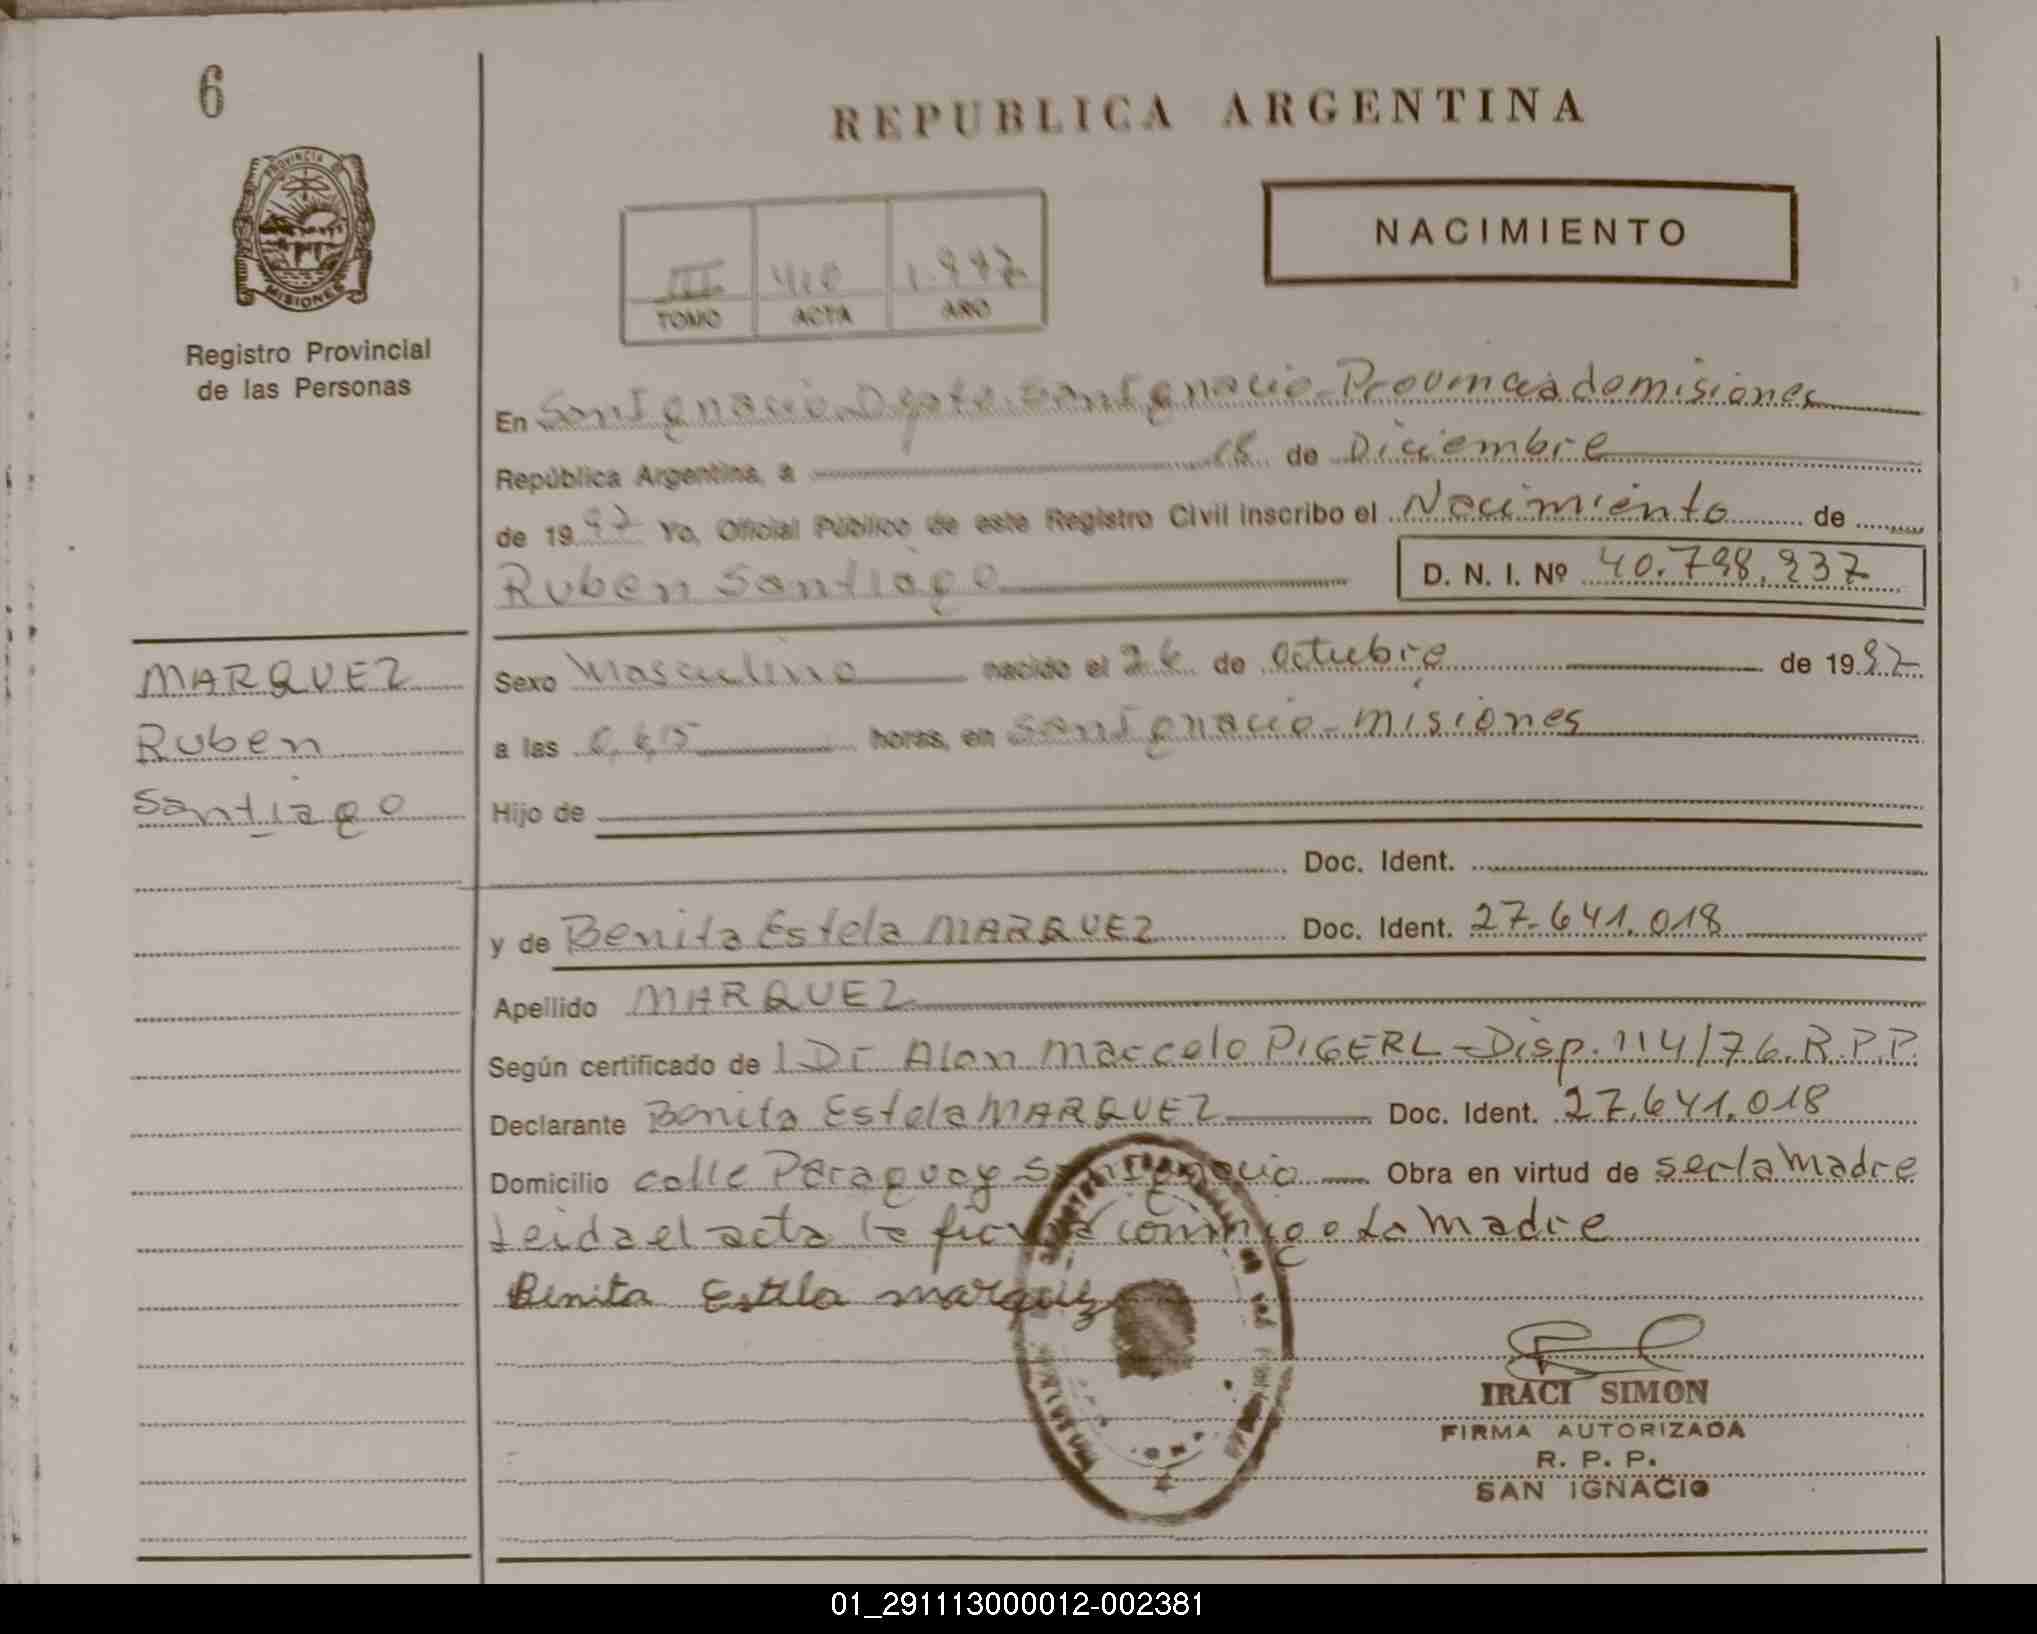 6
REPUBLICA ARGENTINA
PROVINCIA DE
MISIONES
NACIMIENTO
III 410 1.997
TOMO ACTA AÑO
Registro Provincial
de las Personas
En San Ignacio Dpto. San Ignacio - Provincia de misiones
República Argentina, a 18 de Diciembre
de 1997 Yo, Oficial Público de este Registro Civil inscribo el Nacimiento de
Ruben Santiago D. N. I. Nº 40.798.937
MARQUEZ
Ruben
Santiago
Sexo Masculino nacido el 26 de octubre de 1997
a las horas, en San Ignacio - misiones
Hijo de
Doc. Ident.
y de Benita Estela MARQUEZ Doc. Ident. 27.641.018
Apellido MARQUEZ
Según certificado de Dr Alan Marcelo PIGERL - Disp. 114/76. R.P.P.
Declarante Benita Estela MARQUEZ Doc. Ident. 27.641.018
Domicilio calle Paraguay San Ignacio Obra en virtud de ser la Madre
Leida el acta la firma conmigo La Madre
Benita Estela marquez
IRACI SIMON
FIRMA AUTORIZADA
R. P. P.
SAN IGNACIO
01_291113000012-002381